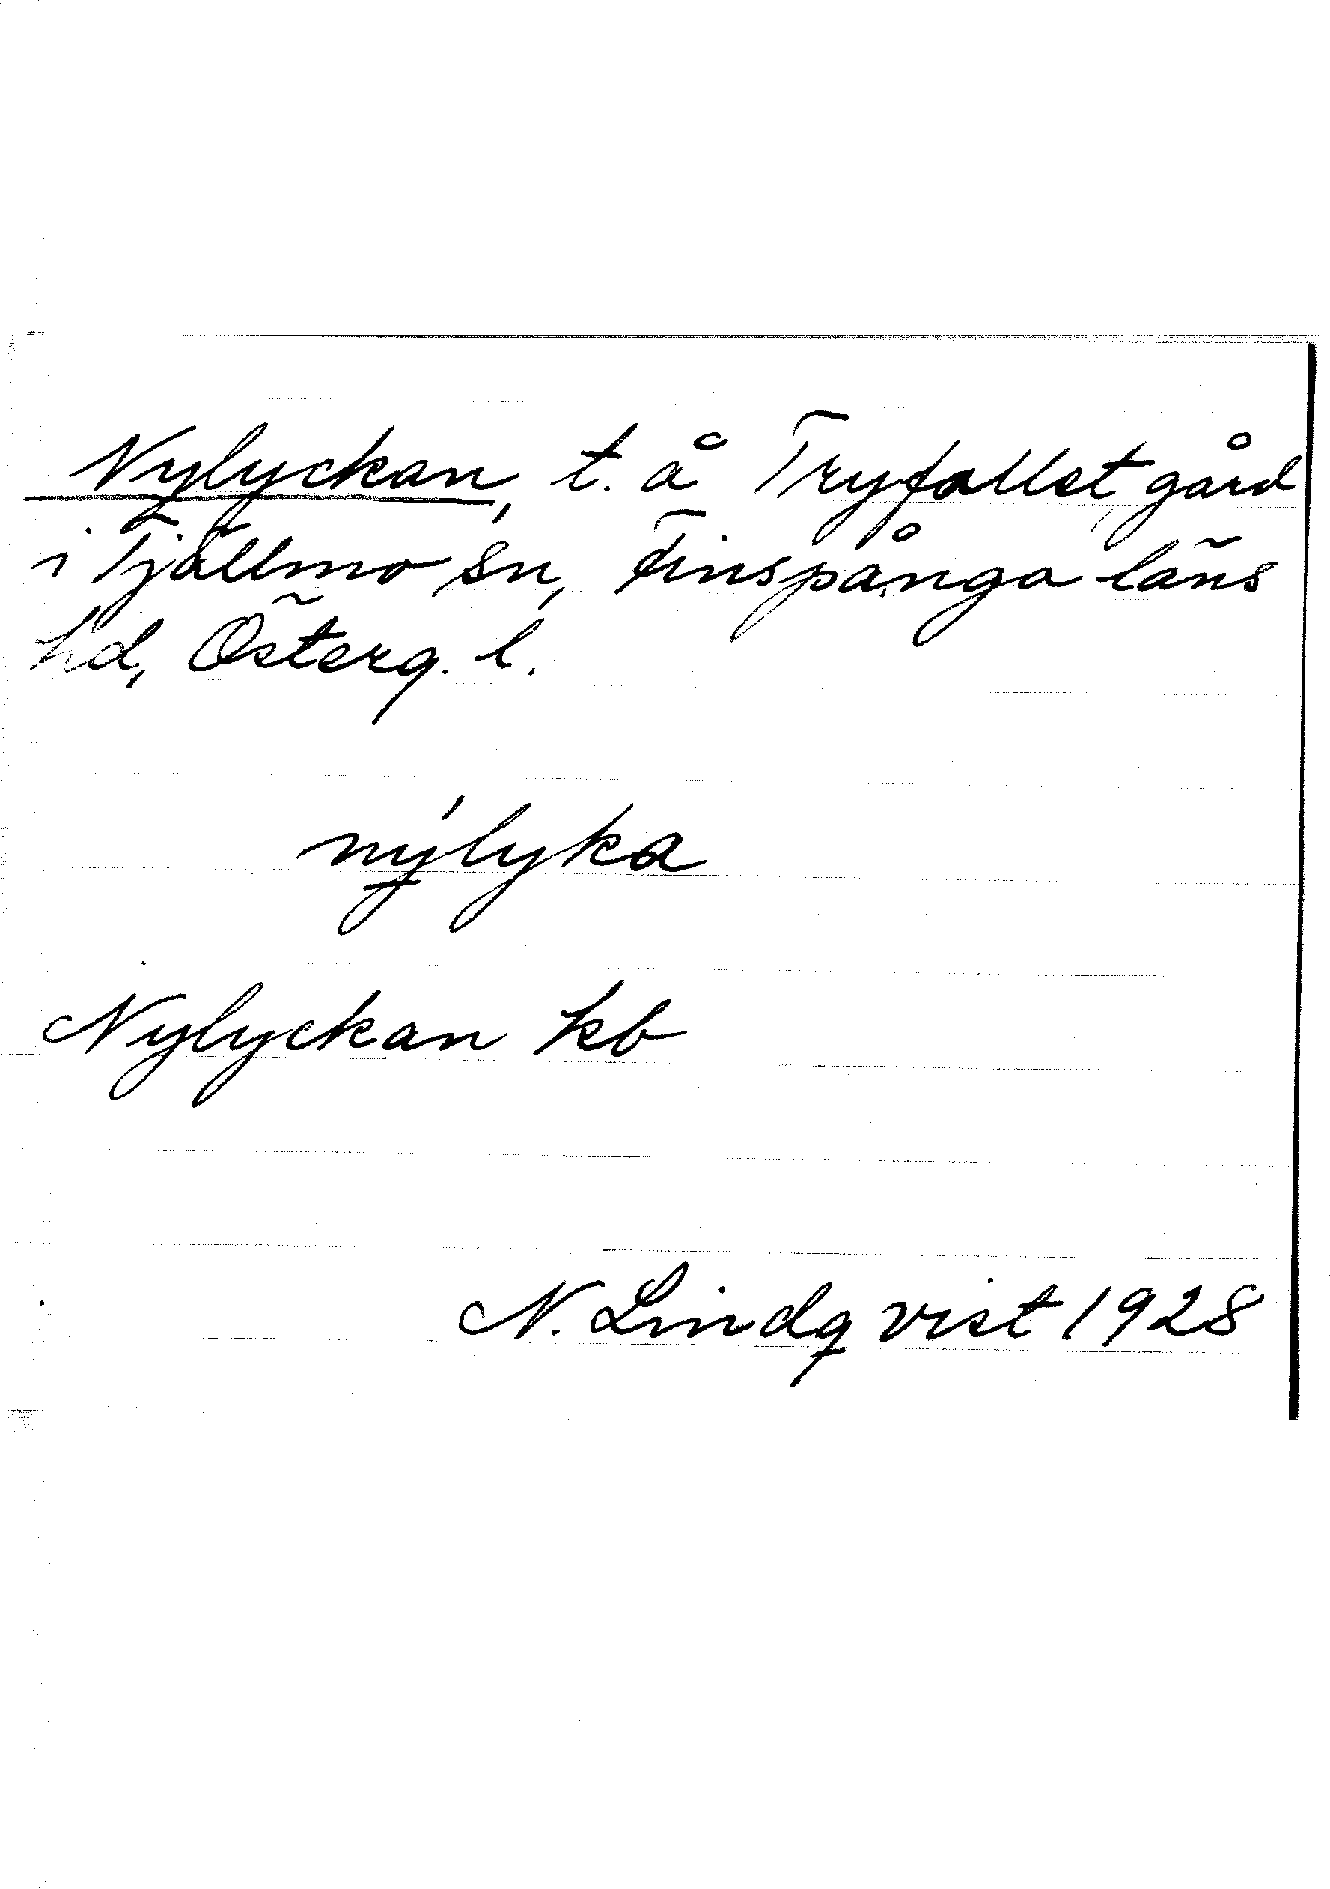 Nylyckan, t. å Tryfallet, gård
i Tjällmo sn, Finspånga läns
hd, Österg. l.
nýlyka
Nylyckan kb
N. Lindqvist 1928